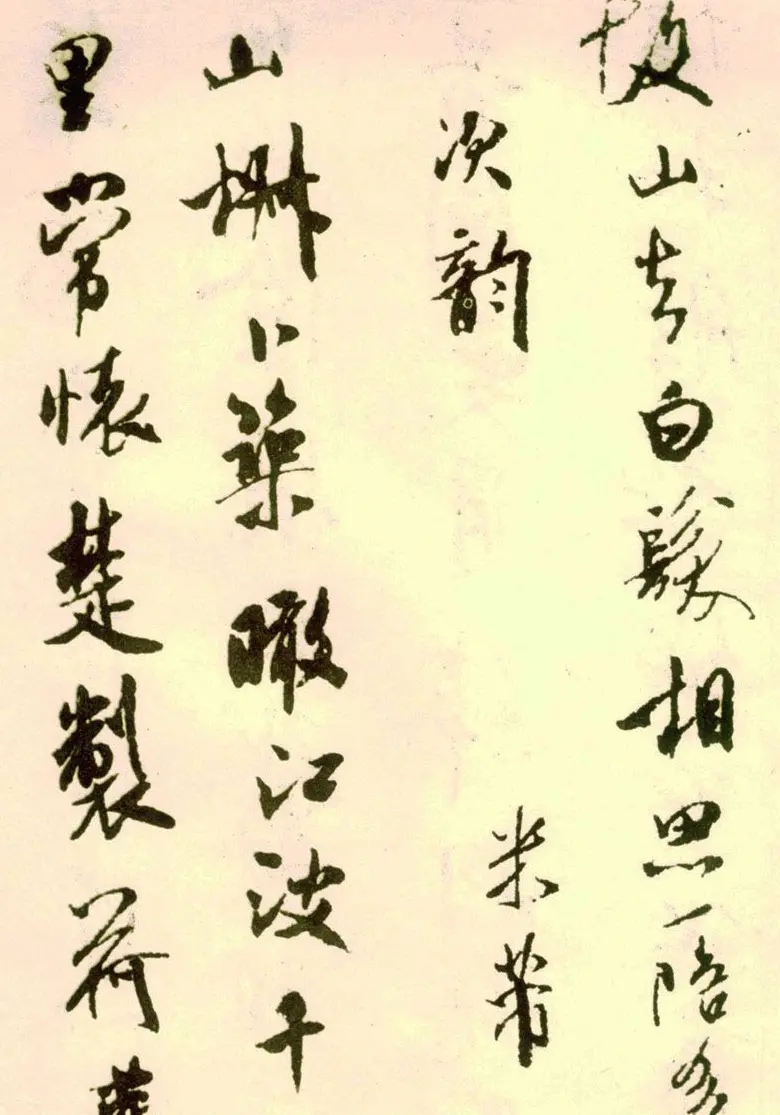 山去白髮相思一陪
次韻 米芾
山椒卜築瞰江波千
里常懷楚製荷